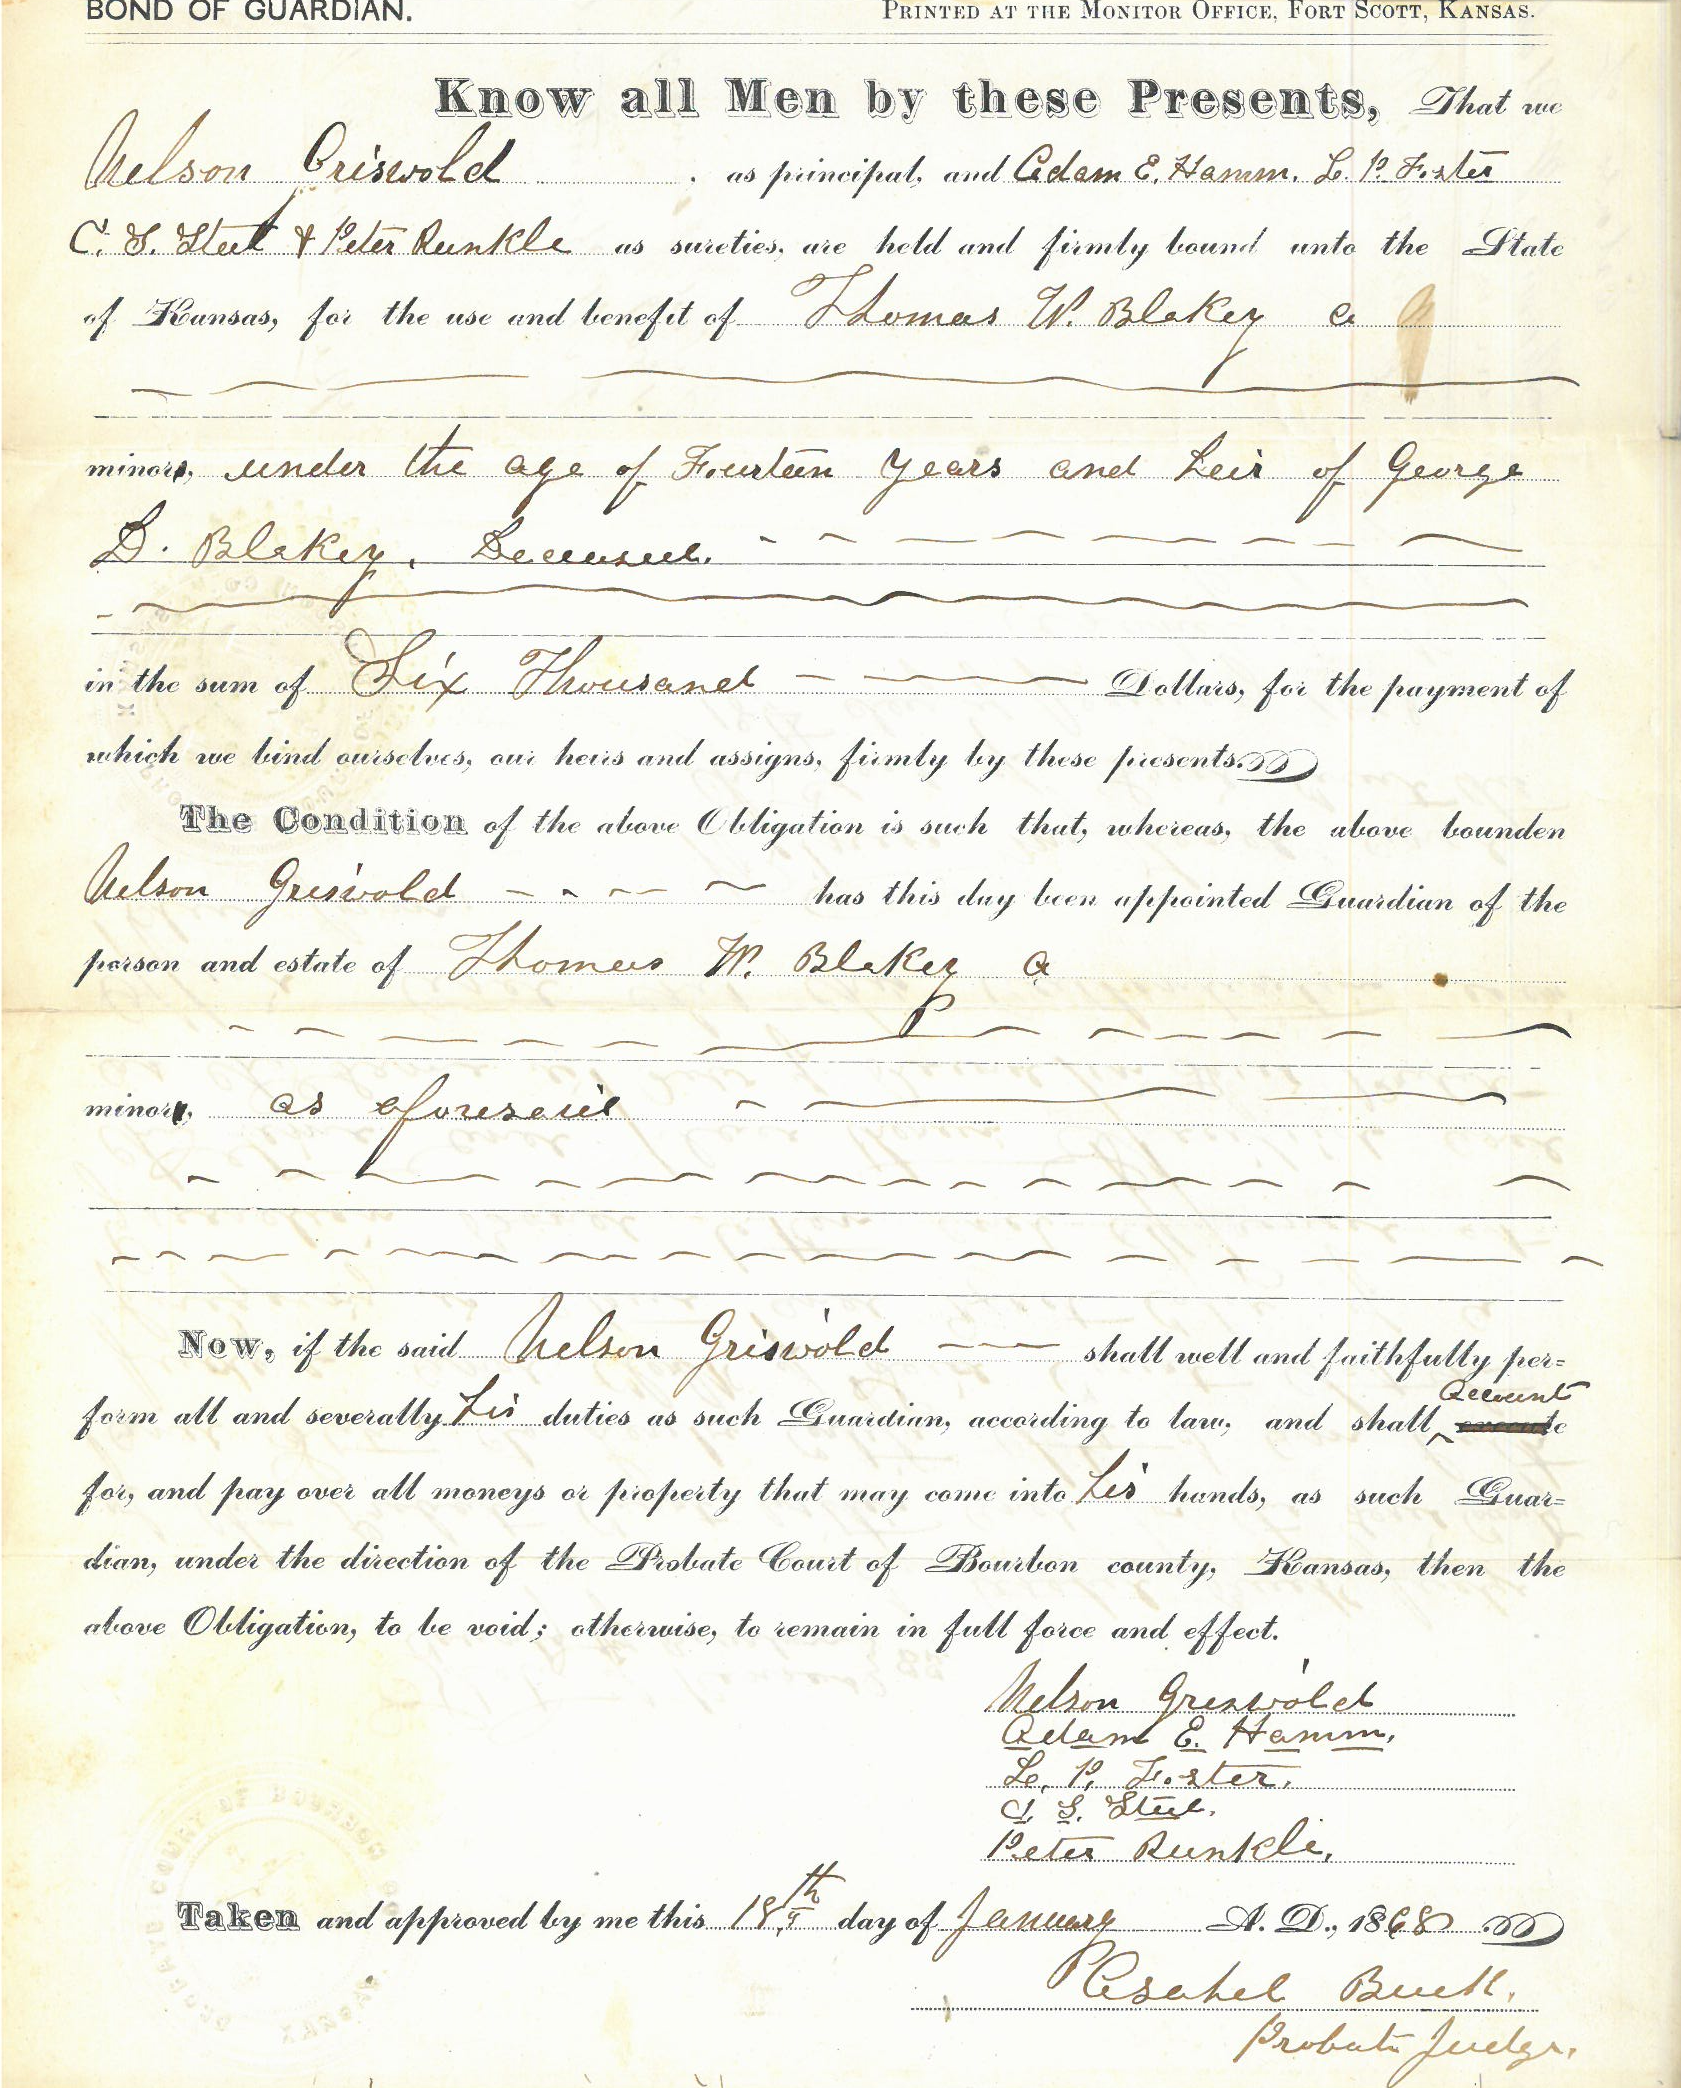 BOND OF GUARDIAN. PRINTED AT THE MONITOR OFFICE, FORT SCOTT, KANSAS.
Know all Men by these Presents, That we
Nelson Griswold as principal, and Adam E. Hamm, L. P. Foster
C. S. Steel & Peter Runkle as sureties, are held and firmly bound unto the State
of Kansas, for the use and benefit of Thomas W. Blakey a
minor, under the age of Fourteen years and heir of George
D. Blakey, Deceased.
in the sum of Six Thousand Dollars, for the payment of
which we bind ourselves, our heirs and assigns, firmly by these presents.
The Condition of the above Obligation is such that, whereas, the above bounden
Nelson Griswold has this day been appointed Guardian of the
person and estate of Thomas W. Blakey a
minor, as aforesaid
Now, if the said Nelson Griswold shall well and faithfully per=
account
form all and severally his duties as such Guardian, according to law; and shall
for, and pay over all moneys or property that may come into his hands, as such Guar=
dian, under the direction of the Probate Court of Bourbon county, Kansas, then the
above Obligation, to be void; otherwise, to remain in full force and effect.
Nelson Griswold
Adam E. Hamm,
L. P. Foster.
C. S. Steel.
Peter Runkle.
Taken and approved by me this 18th day of January A. D., 1868
Asahel Buck.
Probate Judge.